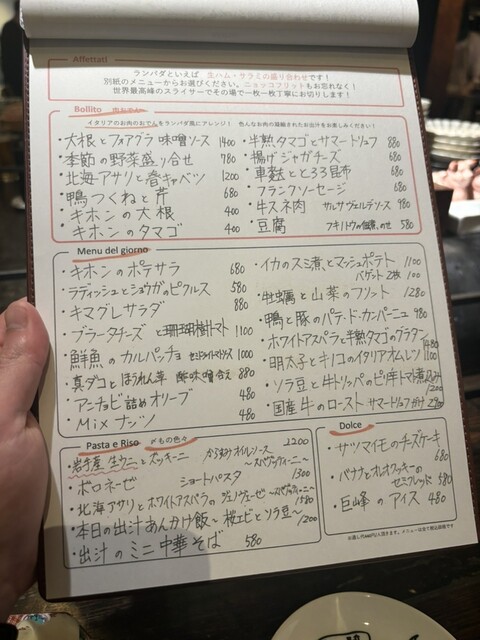 Affettati
ランパダといえば 生ハム・サラミの盛り合わせです！
別紙のメニューからお選びください。ニョッコフリットもお忘れなく！
世界最高峰のスライサーでその場で一枚一枚丁寧にお切りします！
Bollito 肉おでん
イタリアのお肉のおでんをランパダ風にアレンジ！ 色んなお肉の凝縮されたお出汁をお楽しみください！
・大根とフォアグラ 味噌ソース 1400
・季節の野菜盛り合せ 780
・北海アサリと春キャベツ 1200
・鴨つくねと芹 680
・キホンの大根 400
・キホンのタマゴ 400
・半熟タマゴとサマートリュフ 880
・揚げジャガチーズ 680
・車麩ととろろ昆布 680
・フランクソーセージ 680
・牛スネ肉 サルサヴェルデソース 980
・豆腐 フキノトウの佃煮のせ 580
Menu del giorno
・キホンのポテサラ 680
・ラディッシュとショウガのピクルス 580
・キマグレサラダ 880
・ブラータチーズと珊瑚樹トマト 1100
・鮮魚のカルパッチョ セミドライトマトソース 1000
・真ダコとほうれん草 酢味噌合え 880
・アンチョビ詰めオリーブ 480
・Mixナッツ 480
・イカのスミ煮とマッシュポテト 1100
バゲット2枚 100
・牡蠣と山菜のフリット 1280
・鴨と豚のパテ・ド・カンパーニュ 980
・ホワイトアスパラと半熟タマゴのグラタン 1480
・明太子とキノコのイタリアオムレツ 1100
・ソラ豆と牛トリッパのピリ辛トマト煮込み 1200
・国産牛のロースト サマートリュフがけ
Pasta e Riso 〆もの色々
・岩手産 生ウニとズッキーニ からすみオイルソース 2200
〜スパゲッティーニ〜
・ボロネーゼ ショートパスタ 1300
・北海アサリとホワイトアスパラのジェノヴェーゼ 〜スパゲッティーニ〜 1580
・本日の出汁あんかけ飯〜桜エビとソラ豆〜 1200
・出汁のミニ中華そば 580
Dolce
・サツマイモのチーズケーキ 680
・バナナとオレオクッキーの
セミフレッド 580
・巨峰のアイス 480